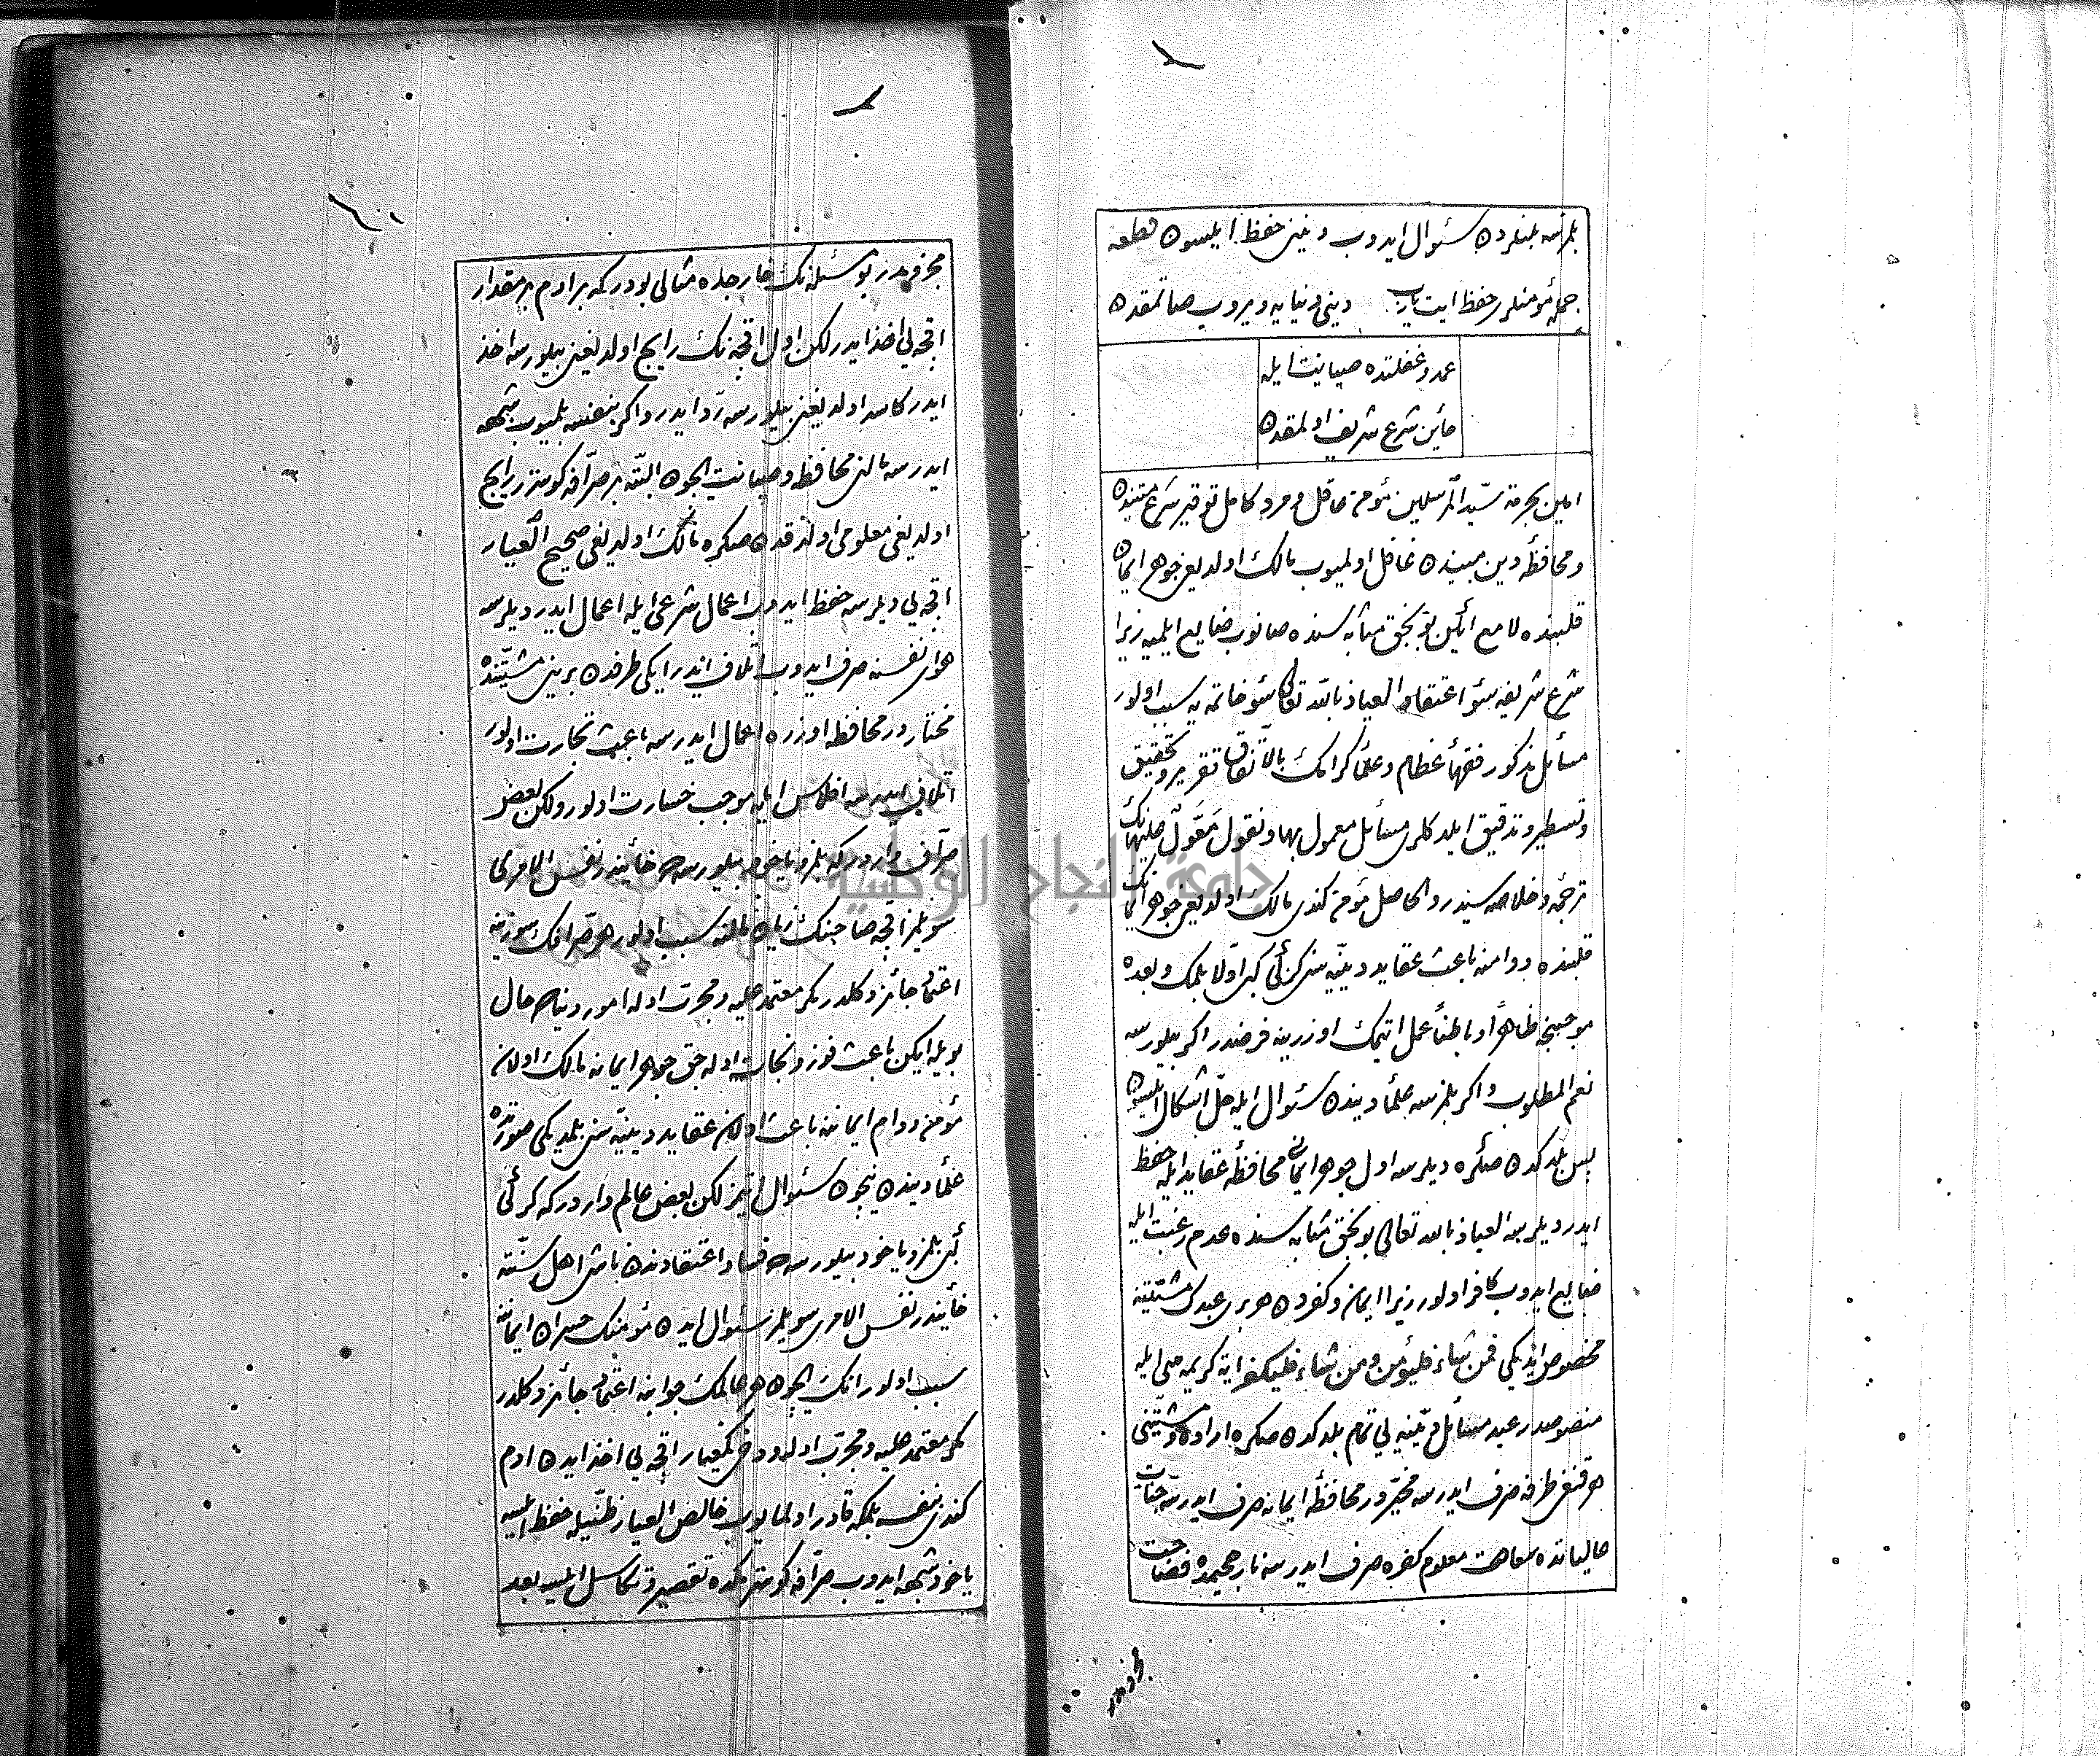 بلمزسه بلنلردن سئوال ايدوب دينن حفظ ايلسون قطعه
جمله مؤمنلرى حفظ ايت يارب دينى دنيايه ويروب صاتمقدن
عمد و غفلتده صيانت ايله
خائن شرع شريف اولمقدن
امين بحرمة سيّد المرسلين مؤمن عاقل و مرد كامل توقير شرع متيندن
و محافظهٔ دين مبيندن غافل اولميوب مالك اولديغى جوهر ايمان
قلبنده لامع ايكن بونجق مثابه سنده صانوب ضايع ايلميه زيرا
شرع شريفه سئو اعتقاد العياذ بالله تعالى سئو خاتمه يه سبب اولور
مسائل مذكور فقهاء عظام و علماء كرامك بالاتفاق تقرير و تحقيق
و تسطير و تدقيق ايلدكلرى مسائل معمول بها و نقول مقول عليهانك
ترجمه و خلاصه سيدر والحاصل مؤمن كندى مالك اولديغى جوهر ايمانك
قلبنده دوامنه باعث عقايد دينيه سن كركى كبى اولا بلمك و بعده
موجبنجه ظاهراً و باطناً عمل اتيمك اوزرينه فرضدر اكر بيلورسه
نعم المطلوب و اكر بلمزسه علماء ديندن سئوال ايله حلّ اشكال ايلسون
پس بلدكدن صكره ديلرسه اول جوهر ايمانى محافظهٔ عقايد ايله حفظ
ايدر ديلرسه العياذ بالله تعالى بونجق مثابه سنده عدم رغبت ايله
ضايع ايدوب كافر اولور زيرا ايمان و كفردن هر برى عبدك مشيّتنه
مخصوص ايديكى فمن شاء فليؤمن ومن شاء فليكفر اية كريمه سى ايله
منصوصدر عبد مسائل دينيه يى تمام بلدكدن صكره اراده و مشيّتنى
هر قنغى طرفه صرف ايدرسه مخيّردر محافظهٔ ايمانه صرف ايدرسه جنات
عالياتده سعاهت معلوم كفره صرف ايدرسه نار جحيمده فضاحت
مجزومدر
مجزومدر بو مسئله نك خارجده مثالى بودركه بر ادم بر مقدار
اقچه يى اخذ ايدر لكن اول اقچه نك رايج اولديغن بيلورسه اخذ
ايدر كاسد اولديغن بيلورسه ردّ ايدر و اكر بنفسه بلميوب شبهه
ايدرسه مالنى محافظه و صيانت ايچون البتّه بر صرّافه كوسترر رايج
اولديغى معلومى اولدقدن صكره مالك اولديغى صحيح العيار
اقچه يى ديلرسه حفظ ايدوب اعمال شرعى ايله اعمال ايدر ديلرسه
هواى نفسنه صرف ايدوب اتلاف ايدر ايكى طرفدن برينى مشيّتنده
مختاردر محافظه اوزره اعمال ايدرسه باعث تجارت اولور
اتلاف ايدرسه افلاس ايله موجب خسارت اولور ولكن بعض
صرّاف واردركه بلمز و ياخود بيلورسه ده خائيندر نفس الامرى
سويلمز اقچه صاحبنك زيان مالنه سبب اولور هر صرّافك سوزينه
اعتماد جائز دكلدر مكر معتمد عليه و مجرب اوله امور دنياده حال
بويله ايكن باعث فوز و نجات اوله جق جوهر ايمانه مالك اولان
مؤمن دوام ايماننه باعث اولان عقايد دينيّه سن بلمديكى صورتده
علماء ديندن نيچون سئوال ايتمز لكن بعض عالم واردركه كركى
كبى بلمز و ياخود بيلورسه ده فساد اعتقادندن ناشى اهل سنّته
خائيندر نفس الامرى سويلمز سئوال ايدن مؤمنك خسران ايماننه
سبب اولور انك ايچون هر عالمك جوابنه اعتماد جائز دكلدر
مكر معتمد عليه و مجرّب اوله و دخى كمعيار اقچه يى اخذ ايدن ادم
كندى بنفسه بلمكه قادر اولمايوب خالص العيار ظنّيله حفظ ايلسه
ياخود شبهه ايدوب صرّافه كوسترمكده تقصير و تكاسل ايلسه بعد